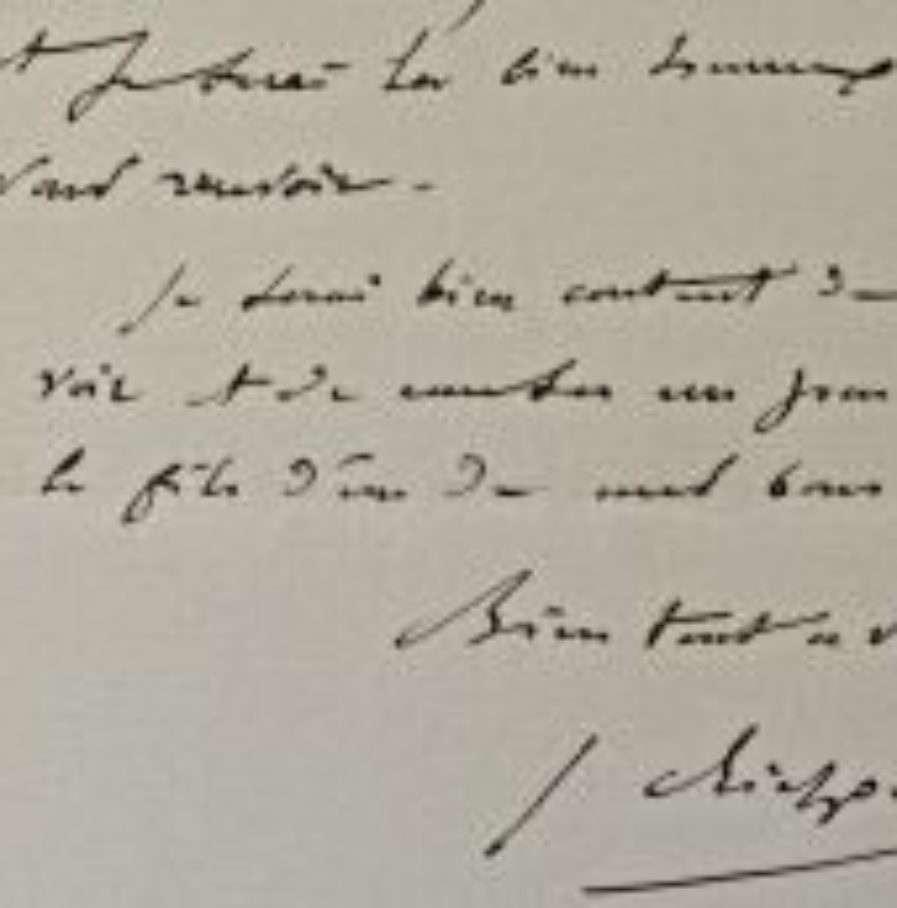 et je serai là bien heureux
vous revoir.
Je serai bien content de
voir et de un
le fils d'un de mes bons
Bien tout à v
J